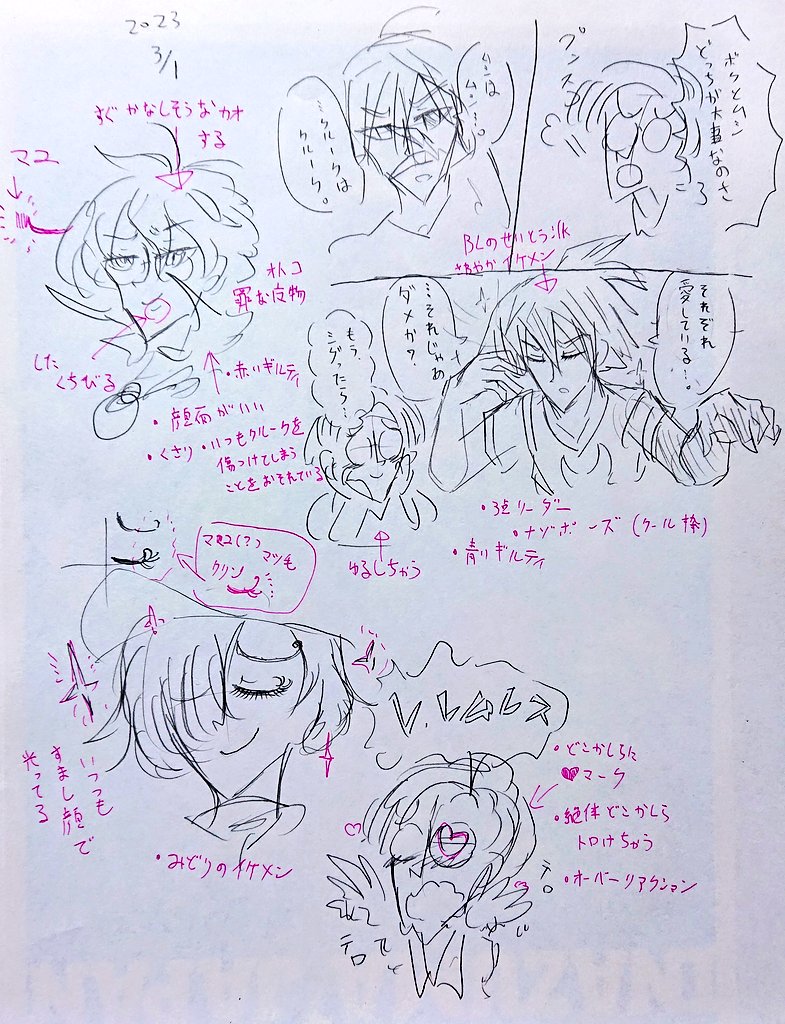 2023
3/1
ボクとムシ
どっちが大事なのさ
プンスコ
ムシは
ムシ…。
…クルークは
クルーク。
すぐかなしそうなカオ
する
マユ
オトコ
罪な
した
くちびる
・赤いギルティ
・顔面がいい
・くさり
・いつもクルークを
傷つけてしまう
ことをおそれている
BLのせいとうは
さわやかイケメン
それぞれ
愛している…。
…それじゃあ
ダメか?
もう、
シグったら…
ゆるしちゃう
・3点リーダー
・ナゾポーズ(クール棒)
・青いギルティ
マユ(?)
マツ毛
クリン
いつも
すまし顔で
光ってる
・みどりのイケメン
V.レムレス
・どこかしらに
♥マーク
・絶体どこかしら
トロけちゃう
・オーバーリアクション
テロ
テロ